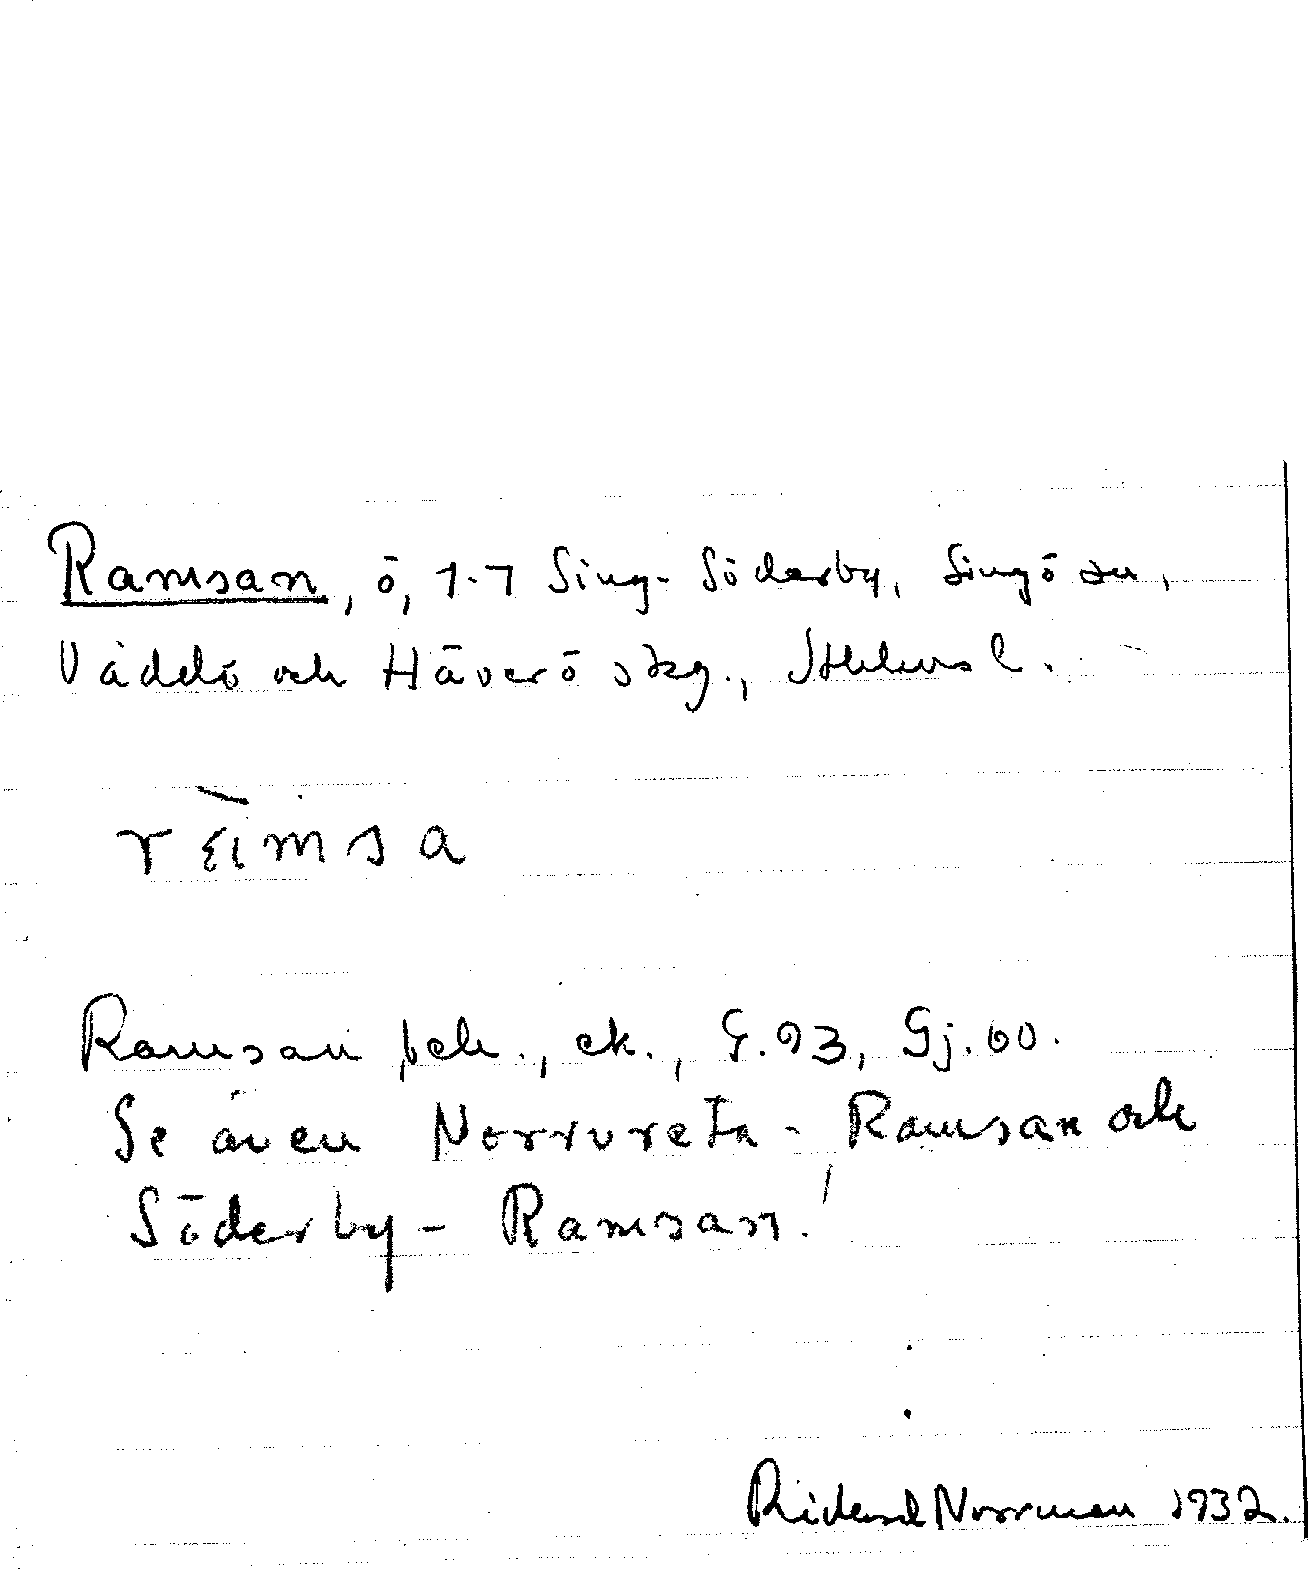 Ramsan, ö, 1-7 Sing-Söderby, Singö sn,
Väddö och Häverö skg., Sthlms l.
ràmsa
Ramsan beb., ek., G.93, Gj.60.
Se även Norrvreta-Ramsan och
Söderby-Ramsan.
Rickard Norrman 1932.